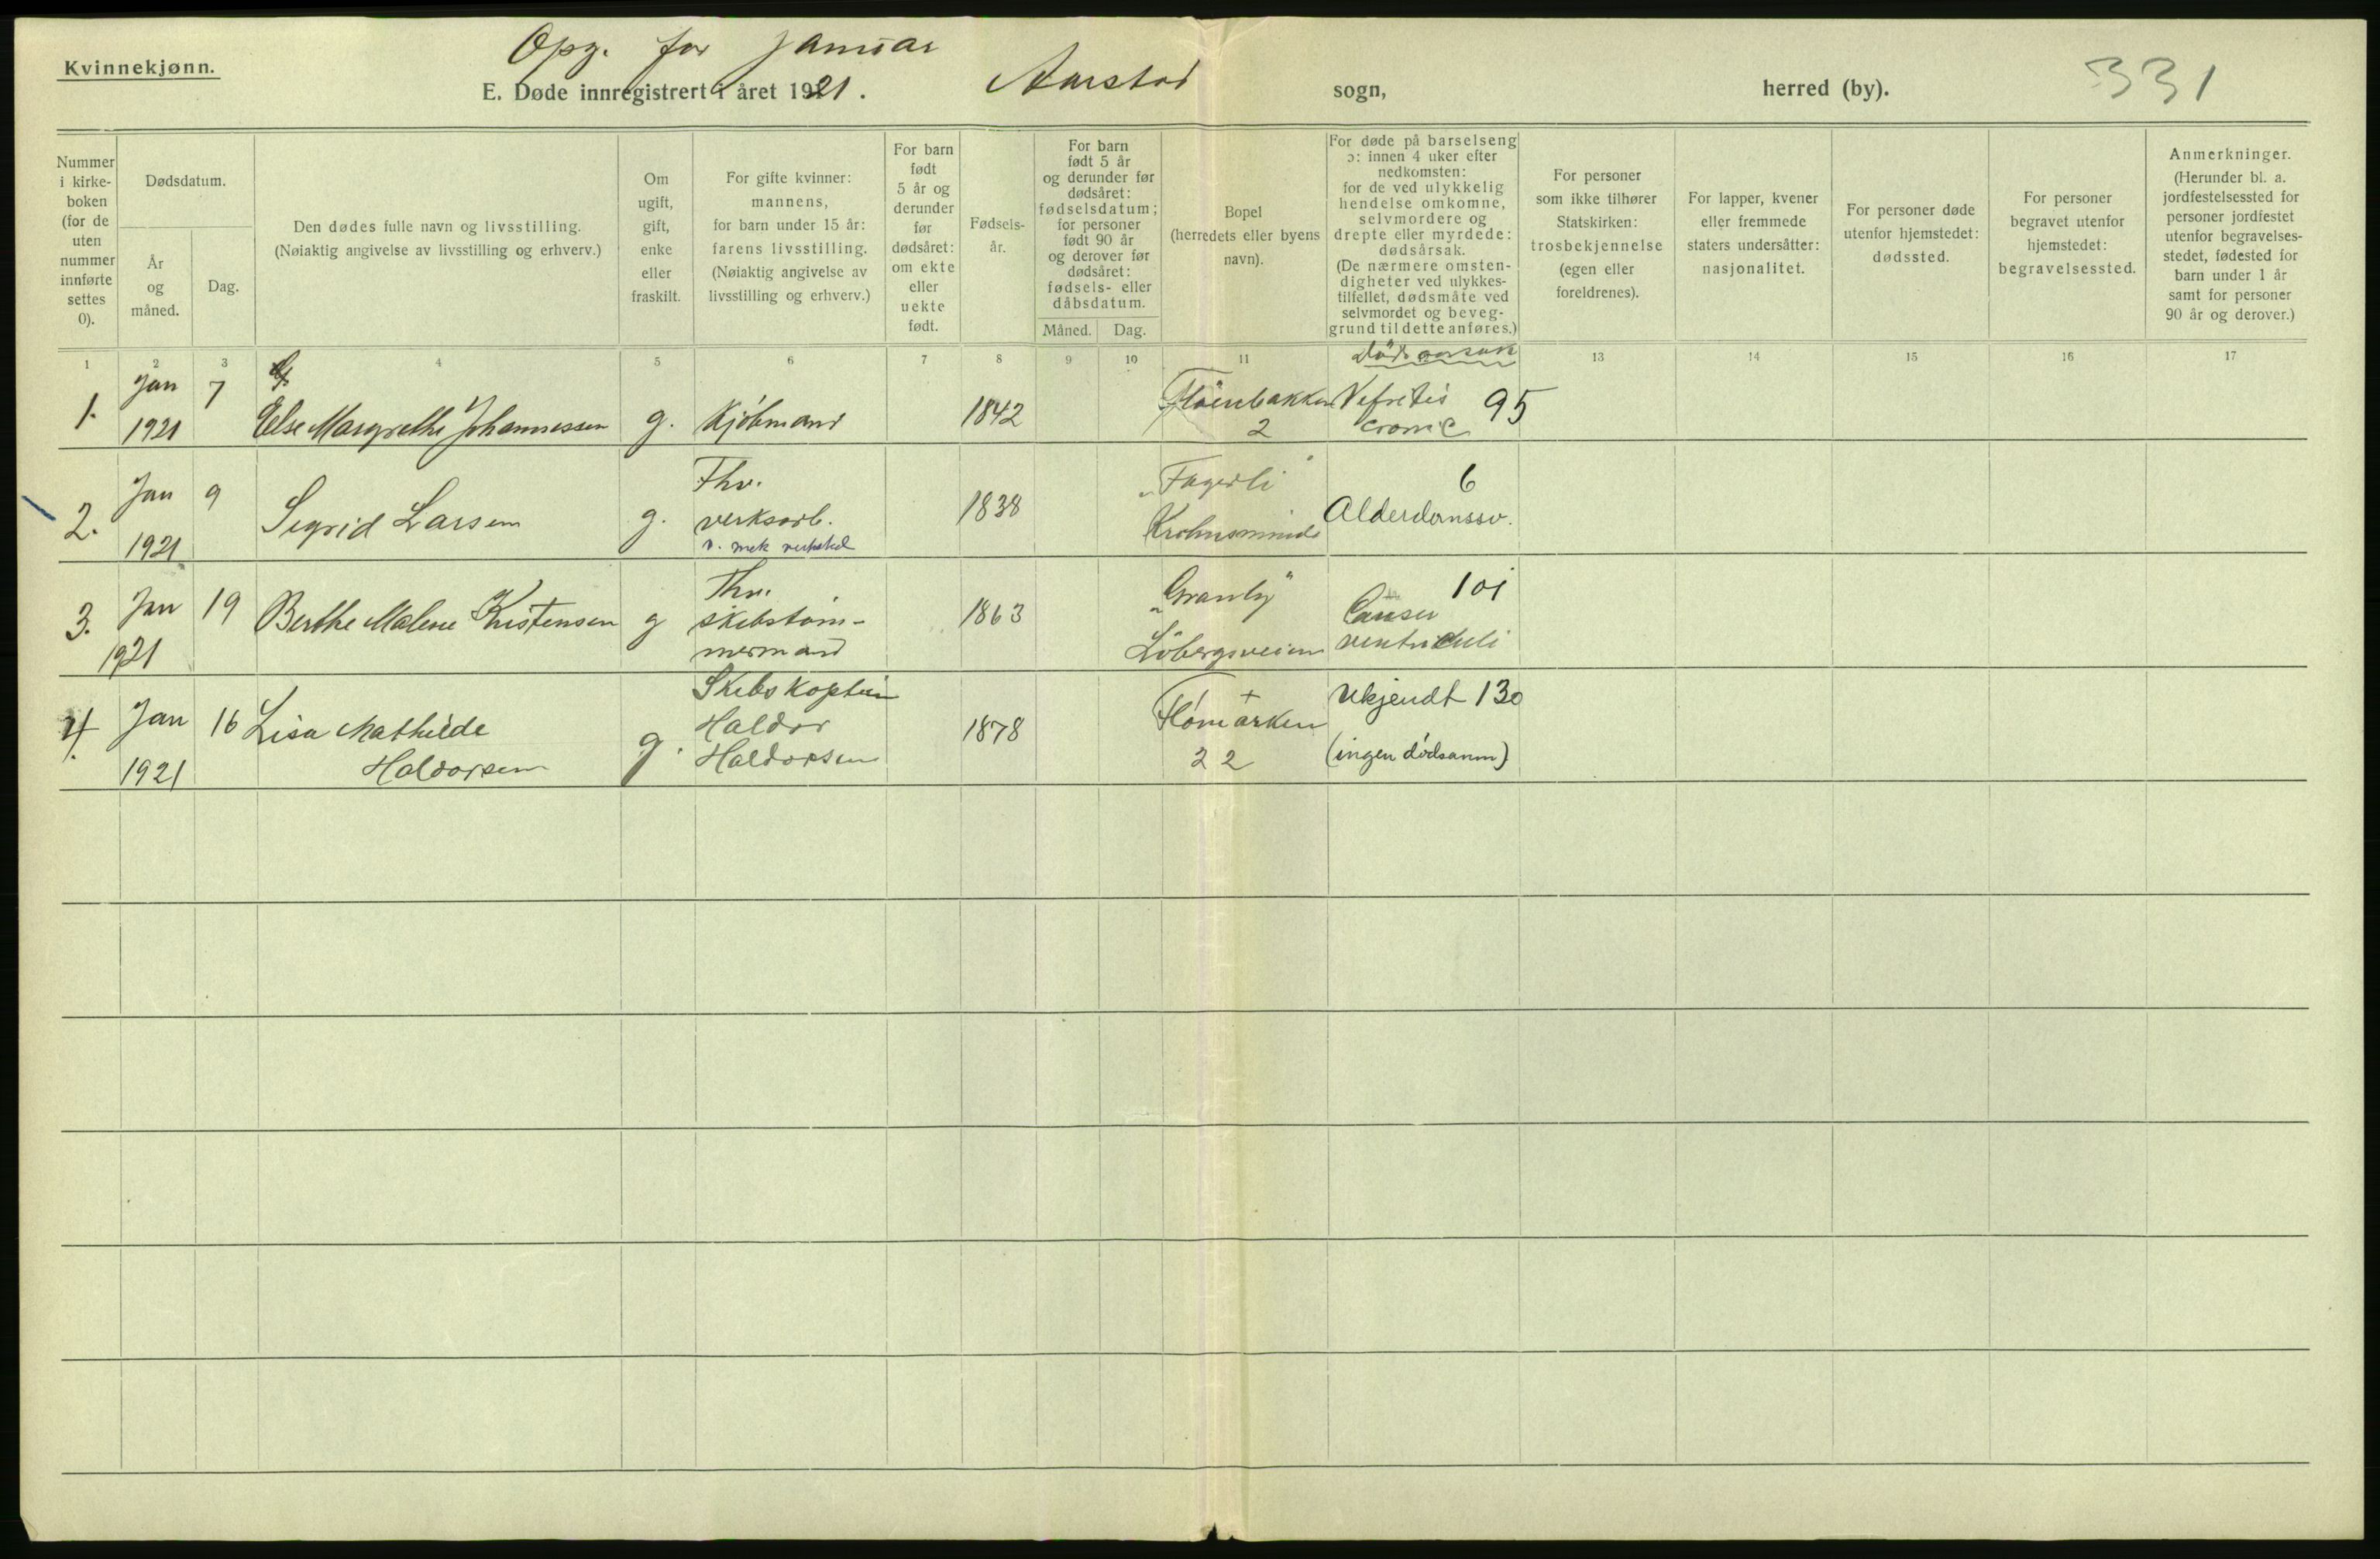 Opg. for Januar
Kvinnekjønn.
E. Døde innregistrert i året 1921. Aarstad sogn, herred (by). 331
Nummer i kirke-boken (for de uten nummer innførte settes 0).
Dødsdatum.
År og måned.
Dag.
Den dødes fulle navn og livsstilling.
(Nøiaktig angivelse av livsstilling og erhverv.)
Om ugift, gift, enke eller fraskilt.
For gifte kvinner: mannens, for barn under 15 år: farens livsstilling. (Nøiaktig angivelse av livsstilling og erhverv.)
For barn født 5 år og derunder før dødsåret: om ekte eller uekte født.
Fødsels-år.
For barn født 5 år og derunder før dødsåret: fødselsdatum; for personer født 90 år og derover før dødsåret: fødsels- eller dåbsdatum.
Måned.
Dag.
Bopel (herredets eller byens navn).
For døde på barselseng ɔ: innen 4 uker efter nedkomsten: for de ved ulykkelig hendelse omkomne, selvmordere og drepte eller myrdede: dødsårsak. (De nærmere omsten-digheter ved ulykkes-tilfellet, dødsmåte ved selvmordet og beveg-grund til dette anføres.)
For personer som ikke tilhører Statskirken: trosbekjennelse (egen eller foreldrenes).
For lapper, kvener eller fremmede staters undersåtter: nasjonalitet.
For personer døde utenfor hjemstedet: dødssted.
For personer begravet utenfor hjemstedet: begravelsessted.
Anmerkninger. (Herunder bl. a. jordfestelsessted for personer jordfestet utenfor begravelses-stedet, fødested for barn under 1 år samt for personer 90 år og derover.)
1 2 3 4 5 6 7 8 9 10 11 13 14 15 16 17
Dödsaarsak
1. Jan 1921 7 Else Margrethe Johannessen g. Kjöbmand 1842 Flöenbakken 2 Nefretis cronic 95
2. Jan 1921 9 Sigrid Larsen g. Fhv. verksarb. v. mek verksted 1838 "Fagerli" Krohnsminde Alderdomssv. 6
3. Jan 1921 19 Berthe Malene Kristensen g Fhv. skibstöm-mermand 1863 "Granly" Löbergsveien Canser ventriculi 101
4. Jan 1921 16 Lisa Mathilde Haldorsen g. Skibskaptein Haldor Haldorsen 1878 + 22 Ukjendt 130 (ingen dödsanm)